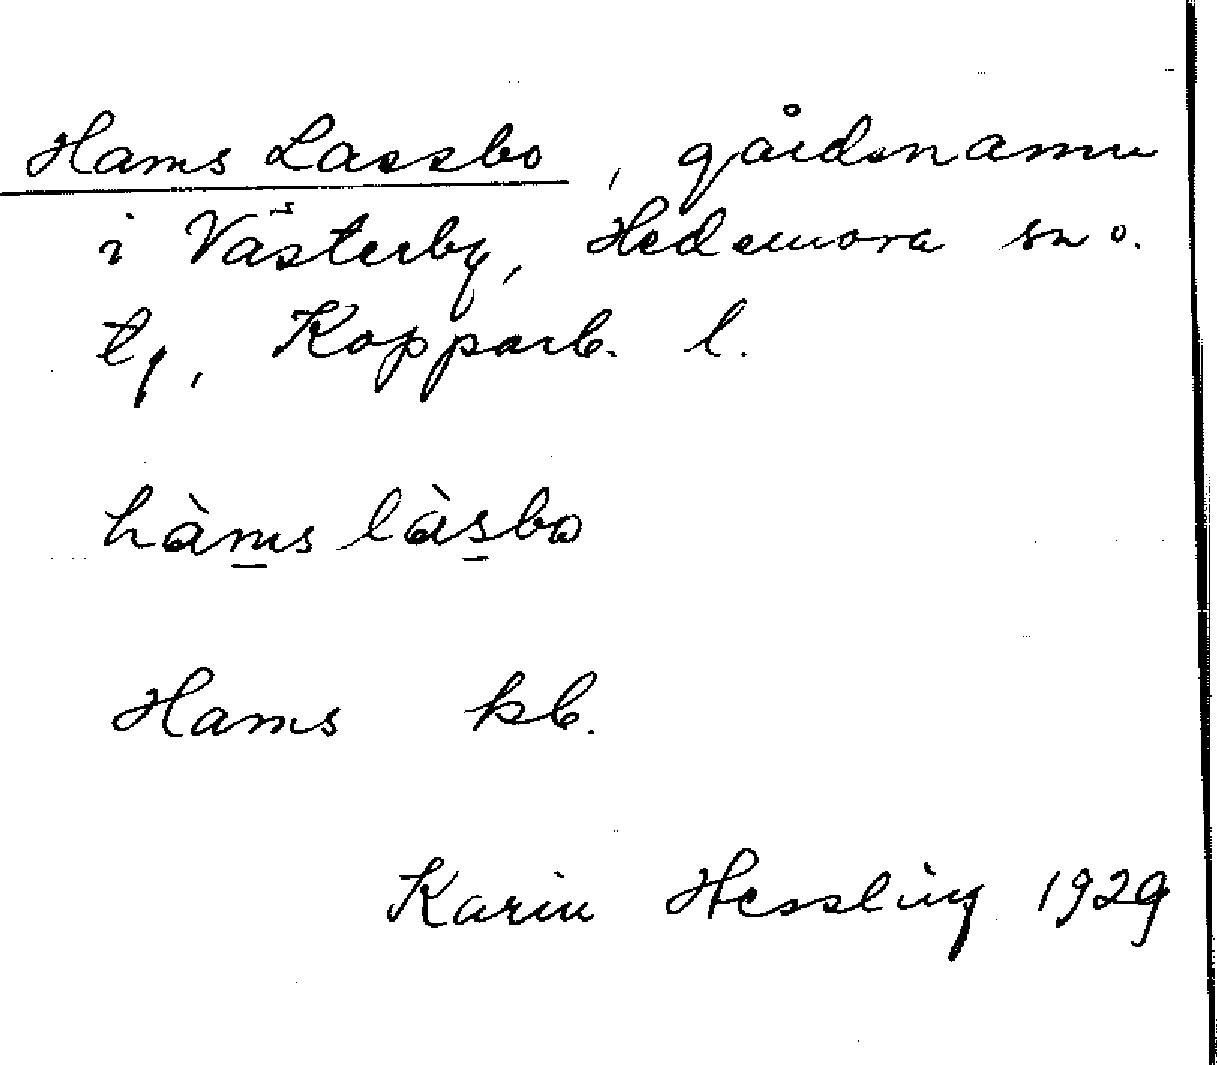 Hams Lassbo, gårdsnamn
i Västerby, Hedemora sn o.
tg, Kopparb. l.
hàms làsbo
Hams kb.
Karin Hessling 1929